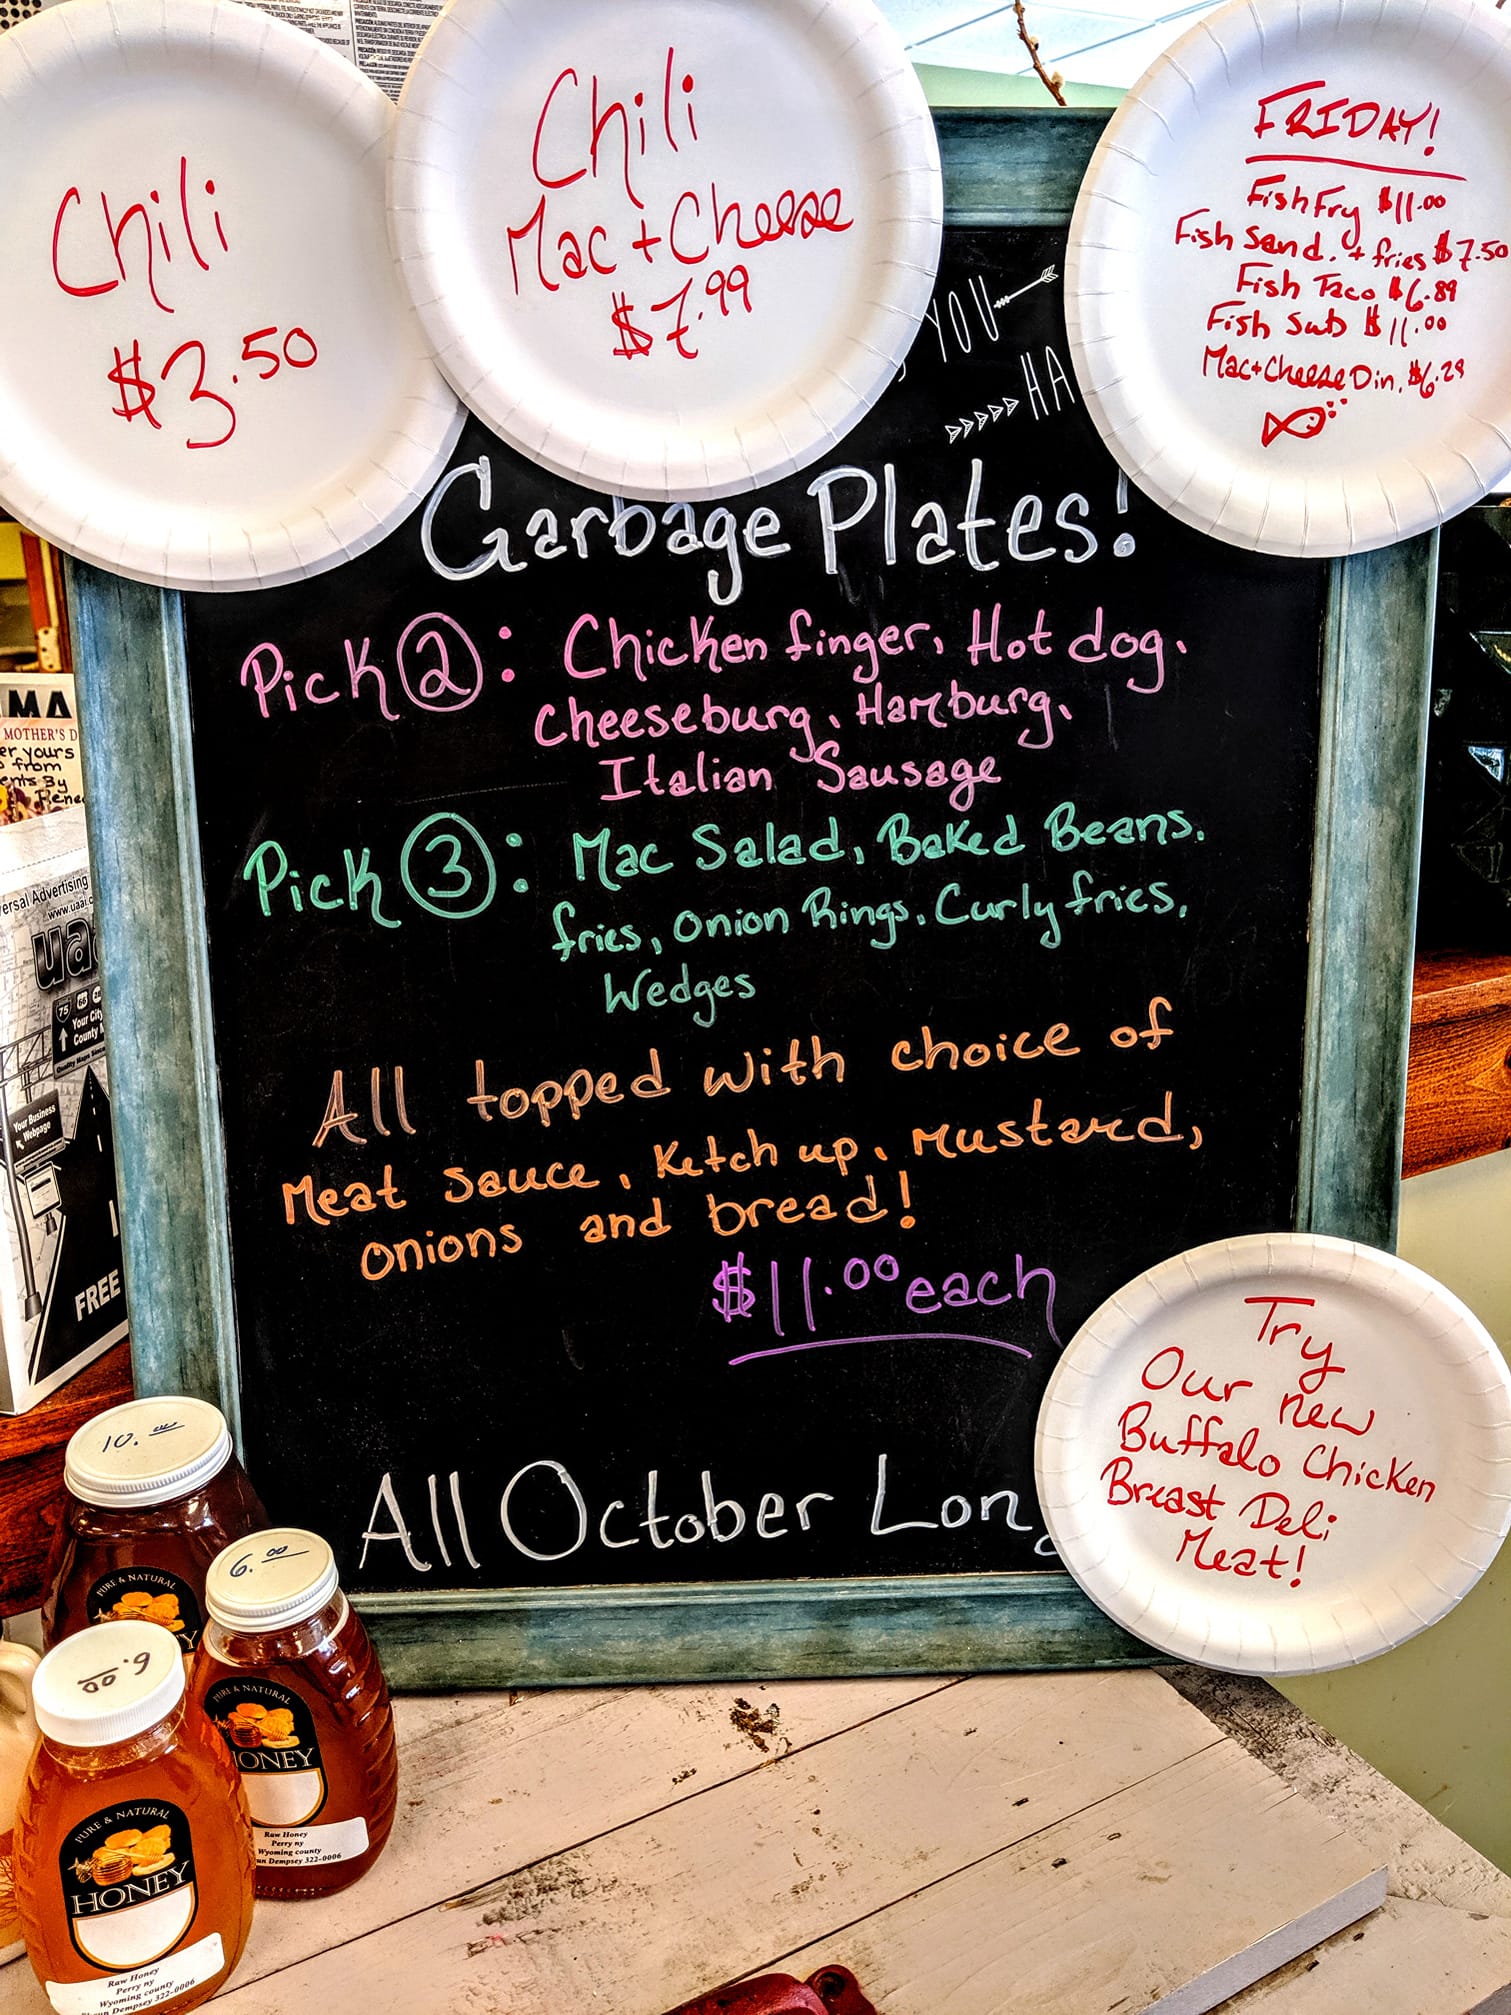 Chili
$3.50
Chili
Mac + Cheese
$7.99
FRIDAY!
Fish Fry $11.00
Fish Sand. + fries $7.50
Fish Taco $6.89
Fish Sub $11.00
Mac + Cheese Din. $6.29
YOU
HA
Garbage Plates!
Pick 2: Chicken finger, Hot dog,
Cheeseburg, Hamburg,
Italian Sausage
Pick 3: Mac Salad, Baked Beans,
fries, Onion Rings, Curly fries,
Wedges
All topped with choice of
Meat sauce, Ketchup, Mustard,
onions and bread!
$11.00 each
All October Long
Try
Our new
Buffalo Chicken
Breast Deli
Meat!
MA
MOTHER'S D
er yours
from
ents By
ersal Advertising
www.uaai.c
uaa
75
66
Your City
County M
Quality Maps Since
Your Business
Webpage
FREE
10.00
PURE & NATURAL
6.00
PURE & NATURAL
HONEY
Raw Honey
Perry ny
Wyoming county
un Dempsey 322-0006
6.00
PURE & NATURAL
HONEY
Raw Honey
Perry ny
Wyoming county
Dempsey 322-0006